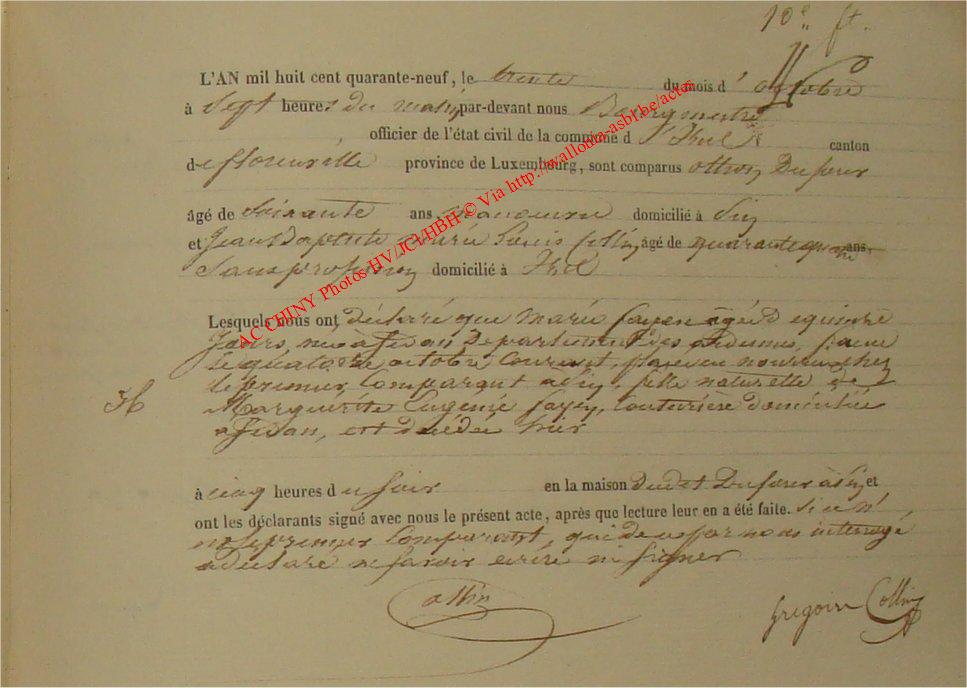 10e ft.
L'AN mil huit cent quarante-neuf, le trente du mois d'octobre
à Sept heures du matin par-devant nous Bourgmestre
officier de l'état civil de la commune d canton
de florenville province de Luxembourg, sont comparus Dufour
âgé de Soixante ans, manoeuvre domicilié à
et Jean Baptiste Marie Louis Collin âgé de quarante ans,
Sans profession domicilié à
Lesquels nous ont déclaré que marie fayen agée de quinze
Jours, née a Sedan Departement des ardennes, 
le quatorze octobre Courant, en nourrice chez
le premier Comparant fille naturelle de
Marguerite Eugénie fayen, Couturière domiciliée
a Sedan, est décédée hier
à cinq heures du soir en la maison dudet Dufour et
ont les déclarants signé avec nous le présent acte, après que lecture leur en a été faite. Si ce n'
est le premier Comparant, qui de ce par nous interrogé
a déclaré ne savoir ecrire ni signer
Collin
Gregoire Collin
AC CHINY Photos HV/JCl/HBH © Via http://wallonia-asbl.be/actes